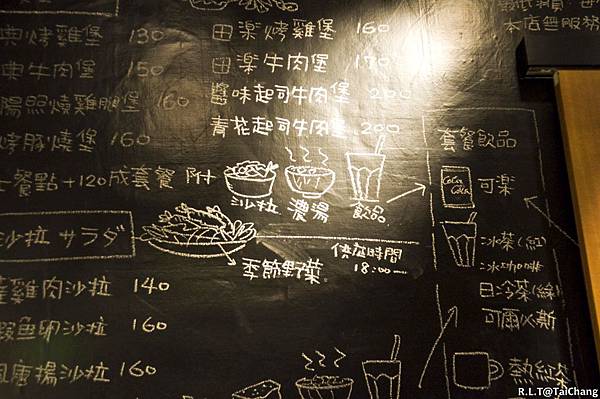 典烤雞堡 130
典牛肉堡 150
陽照燒雞腿堡 160
烤豚燒堡 160
餐點+120成套餐 附
沙拉 濃湯 飲品
田楽烤雞堡 160
田楽牛肉堡 170
醬味起司牛肉堡 200
青花起司牛肉堡 200
本店無服務
套餐飲品
Coca Cola
可楽
冰茶(紅
冰咖啡
日冷茶(綠
可爾必斯
熱紅茶
沙拉 サラダ
季節野菜
供應時間
18:00—
雞肉沙拉 140
蝦魚卵沙拉 160
唐揚沙拉 160
R.L.T@TaiChang